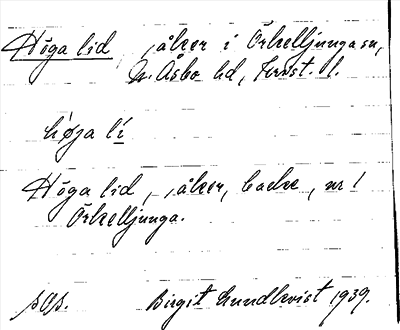 Höga lid, åker i Örkelljunga sn,
N. Åsbo hd, Krist. l.
høga lí
Höga lid, åker, backe, nr 1
Örkelljunga.
Birgit Lundkvist 1939.